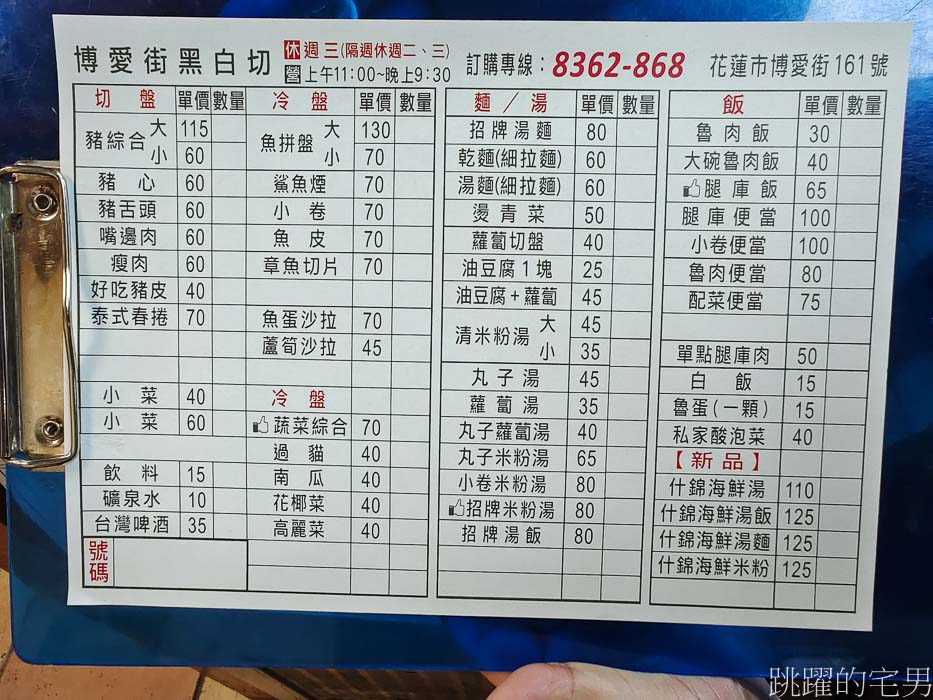 博愛街黑白切
休 週三(隔週休週二、三)
營 上午11:00~晚上9:30
訂購專線：8362-868
花蓮市博愛街161號
切盤 單價 數量
豬綜合 大 115
小 60
豬心 60
豬舌頭 60
嘴邊肉 60
瘦肉 60
好吃豬皮 40
泰式春捲 70
小菜 40
小菜 60
飲料 15
礦泉水 10
台灣啤酒 35
號碼
冷盤 單價 數量
魚拼盤 大 130
小 70
鯊魚煙 70
小卷 70
魚皮 70
章魚切片 70
魚蛋沙拉 70
蘆筍沙拉 45
冷盤
蔬菜綜合 70
過貓 40
南瓜 40
花椰菜 40
高麗菜 40
麵／湯 單價 數量
招牌湯麵 80
乾麵(細拉麵) 60
湯麵(細拉麵) 60
燙青菜 50
蘿蔔切盤 40
油豆腐1塊 25
油豆腐+蘿蔔 45
清米粉湯 大 45
小 35
丸子湯 45
蘿蔔湯 35
丸子蘿蔔湯 40
丸子米粉湯 65
小卷米粉湯 80
招牌米粉湯 80
招牌湯飯 80
飯 單價 數量
魯肉飯 30
大碗魯肉飯 40
腿庫飯 65
腿庫便當 100
小卷便當 100
魯肉便當 80
配菜便當 75
單點腿庫肉 50
白飯 15
魯蛋(一顆) 15
私家酸泡菜 40
【新品】
什錦海鮮湯 110
什錦海鮮湯飯 125
什錦海鮮湯麵 125
什錦海鮮米粉 125
跳躍的宅男